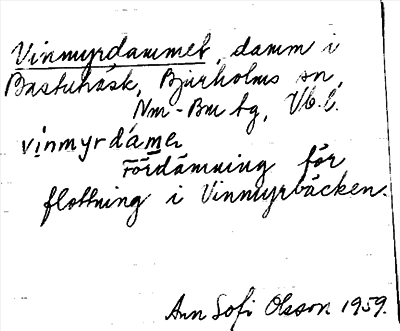 Vinmyrdammet, damm i
Bastuträsk, Bjurholms sn,
Nm-Bm tg, Vb.l.
vinmyrdámẹr
Fördämning för
flottning i Vinmyrbäcken.
Ann Sofi Olsson 1959.